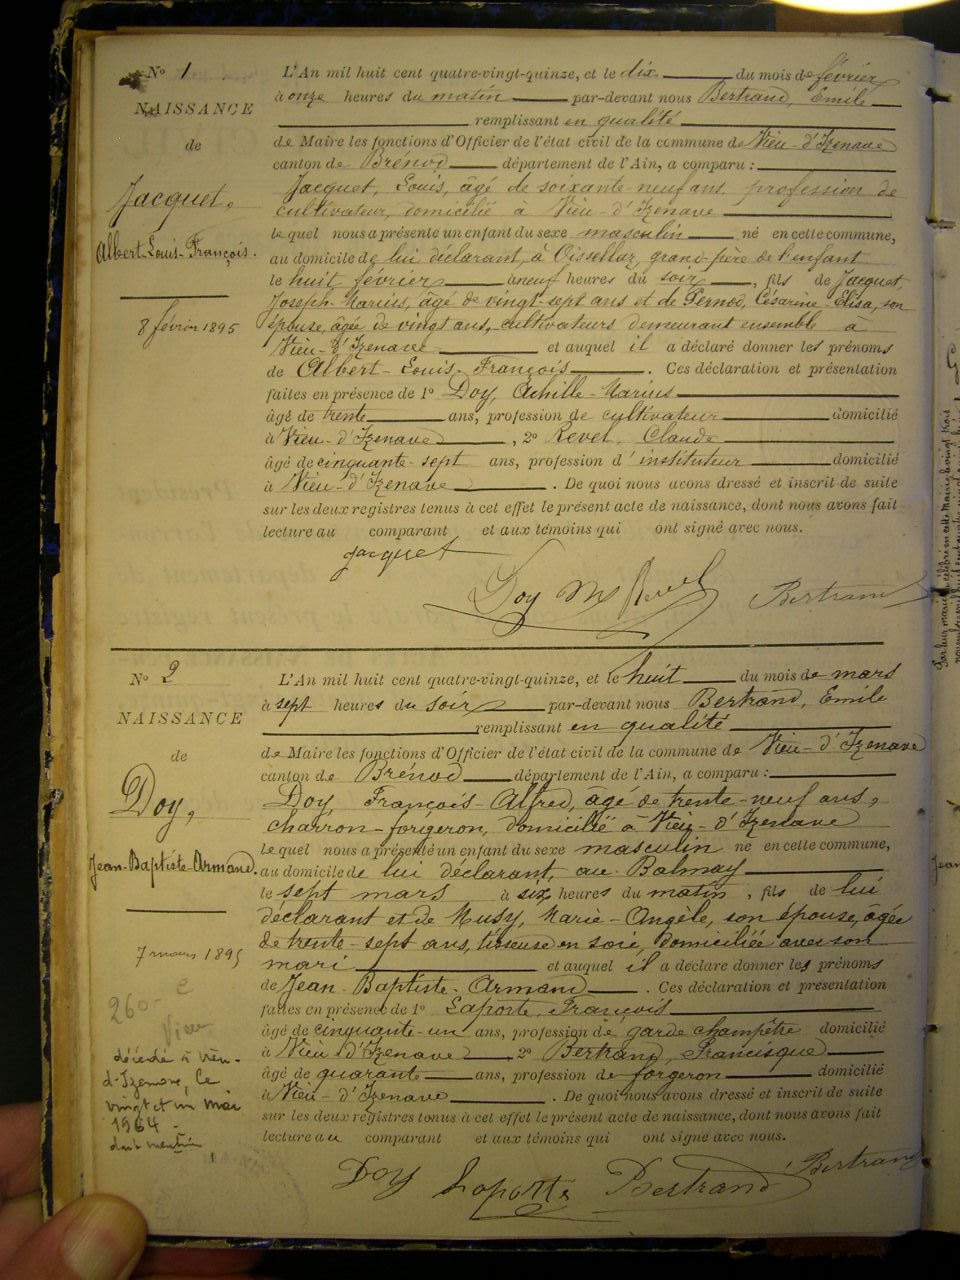 No 1
NAISSANCE
de
Jacquet,
Albert-Louis-François.
8 février 1895
L'An mil huit cent quatre-vingt-quinze, et le dix du mois de février
à onze heures du matin par-devant nous Bertrand, Emile
remplissant en qualité
de Maire les fonctions d'Officier de l'état civil de la commune de Vieu-d'Izenave
canton de Brénod département de l'Ain, a comparu :
Jacquet, Louis, âgé de soixante-neuf ans, profession de
cultivateur, domicilié à Vieu-d'Izenave
lequel nous a présenté un enfant du sexe masculin né en cette commune,
au domicile de lui déclarant, à Oisselaz, grand-père de l'enfant
le huit février à neuf heures du soir, fils de Jacquet,
Joseph-Marius, âgé de vingt-sept ans et de Pernod, Césarine-Elisa, son
épouse, âgée de vingt ans, cultivateurs demeurant ensemble à
Vieu-d'Izenave et auquel il a déclaré donner les prénoms
de Albert-Louis-François. Ces déclaration et présentation
faites en présence de 1o Doy, Achille-Marius
âgé de trente ans, profession de cultivateur domicilié
à Vieu-d'Izenave, 2o Revel, Claude
âgé de cinquante-sept ans, profession d'instituteur domicilié
à Vieu-d'Izenave. De quoi nous avons dressé et inscrit de suite
sur les deux registres tenus à cet effet le présent acte de naissance, dont nous avons fait
lecture au comparant et aux témoins qui ont signé avec nous.
Jacquet
Doy M Revel Bertrand
No 2
NAISSANCE
de
Doy,
Jean-Baptiste-Armand.
7 mars 1895
260
Vieu
décédé à Vieu-
d'Izenave, le
vingt et un mai
1964 -
dont mention
L'An mil huit cent quatre-vingt-quinze, et le huit du mois de mars
à sept heures du soir par-devant nous Bertrand, Emile
remplissant en qualité
de Maire les fonctions d'Officier de l'état civil de la commune de Vieu-d'Izenave
canton de Brénod département de l'Ain, a comparu :
Doy François-Alfred, âgé de trente-neuf ans,
charron-forgeron, domicilié à Vieu-d'Izenave
lequel nous a présenté un enfant du sexe masculin né en cette commune,
au domicile de lui déclarant, au Balmay
le sept mars à six heures du matin, fils de lui
déclarant et de Musy, Marie-Angèle, son épouse, âgée
de trente-sept ans, tisseuse en soie, domiciliée avec son
mari et auquel il a déclaré donner les prénoms
de Jean-Baptiste-Armand. Ces déclaration et présentation
faites en présence de 1o Laporte, François
âgé de cinquante-un ans, profession de garde champêtre domicilié
à Vieu d'Izenave 2o Bertrand, Francisque
âgé de quarante ans, profession de forgeron domicilié
à Vieu-d'Izenave. De quoi nous avons dressé et inscrit de suite
sur les deux registres tenus à cet effet le présent acte de naissance, dont nous avons fait
lecture au comparant et aux témoins qui ont signé avec nous.
Doy Laporte Bertrand Bertrand